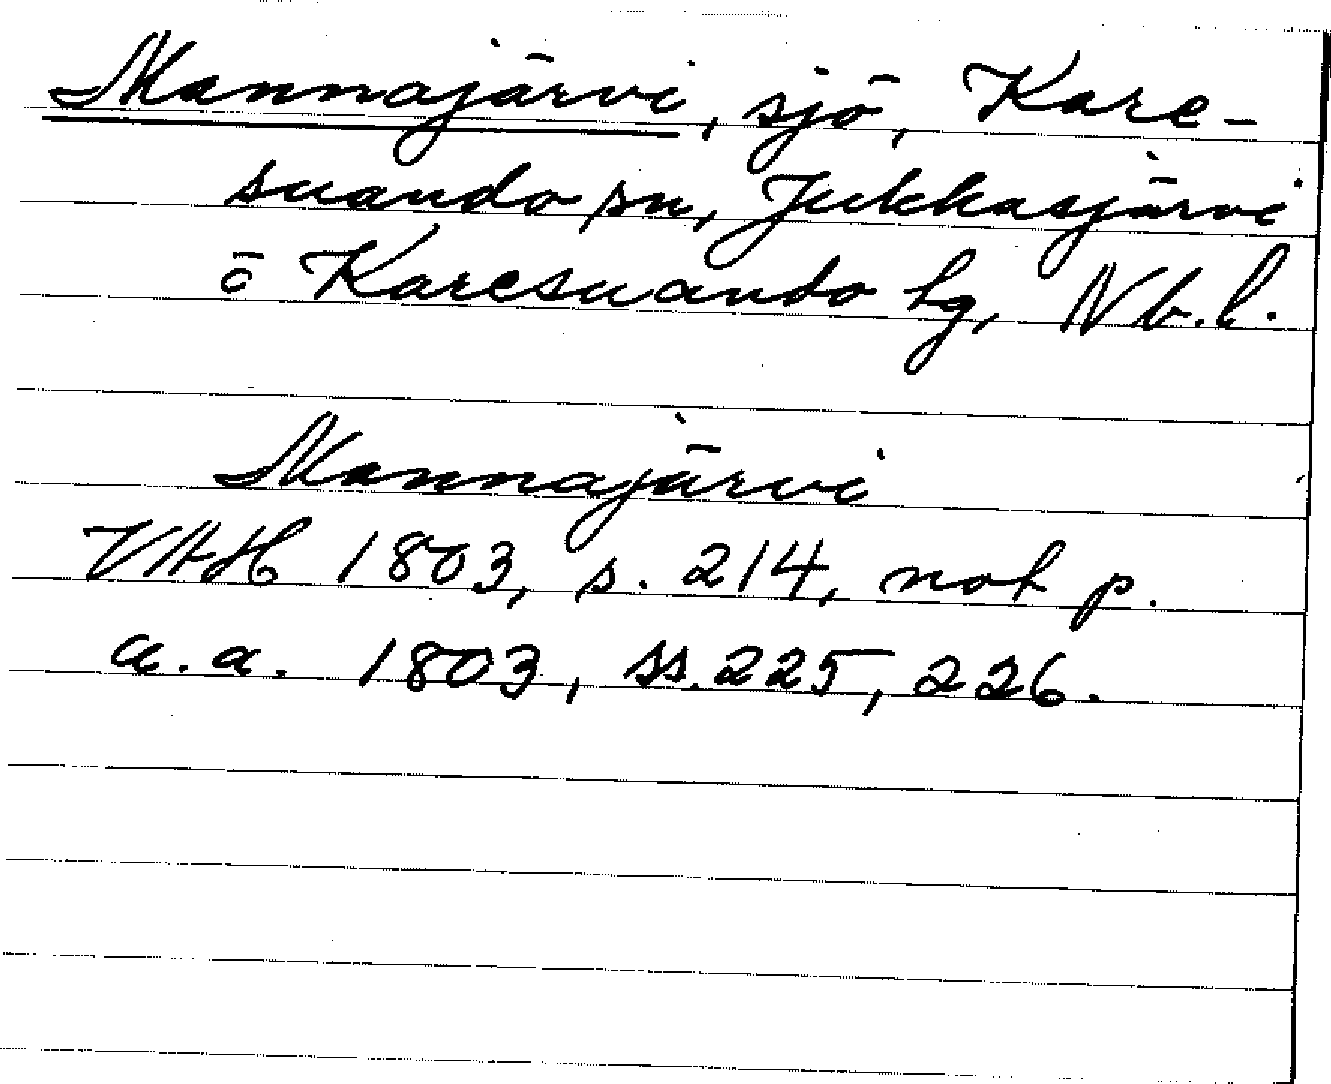 Mannajärvi, sjö, Kare-
suando sn, Jukkasjärvi
o Karesuando tg, Nb.l.
Mannajärvi
VAH 1803, s. 214, not p.
a.a. 1803, ss. 225, 226.